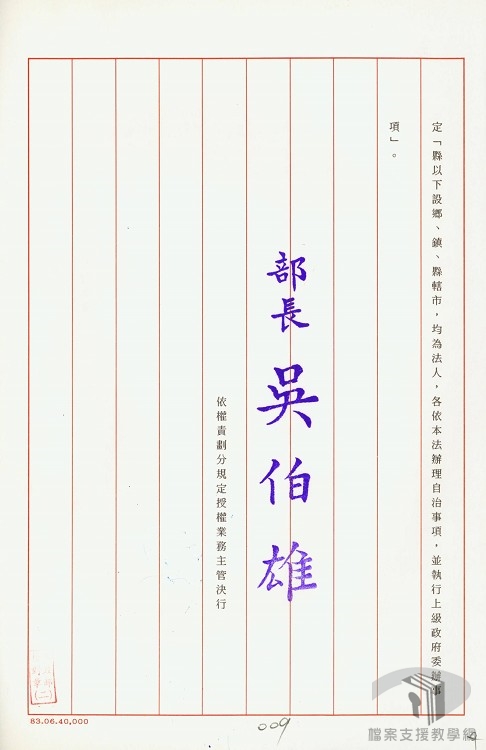 定「縣以下設鄉、鎮、縣轄市，均為法人，各依本法辦理自治事項，並執行上級政府委辦事
項」。
部長 吳伯雄
依權責劃分規定授權業務主管決行
83.06.40,000
009
檔案支援教學網